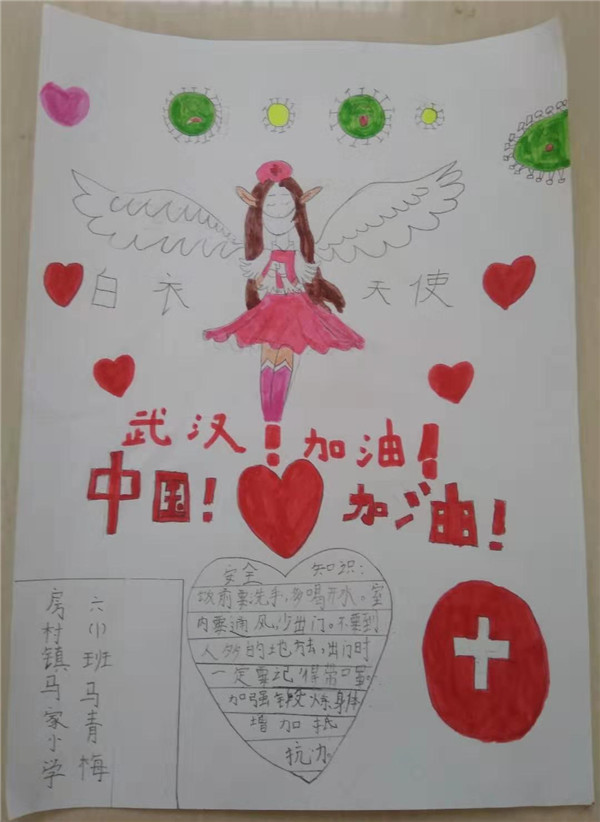 白衣 天使
武汉！加油！
中国！ 加油！
安全 知识：
饭前要洗手，多喝开水。室
内要通风，少出门。不要到
人多的地方去，出门时
一定要记得带口罩
加强锻炼身体
增加抵
抗力。
六（1）班 马青梅
房村镇马家小学